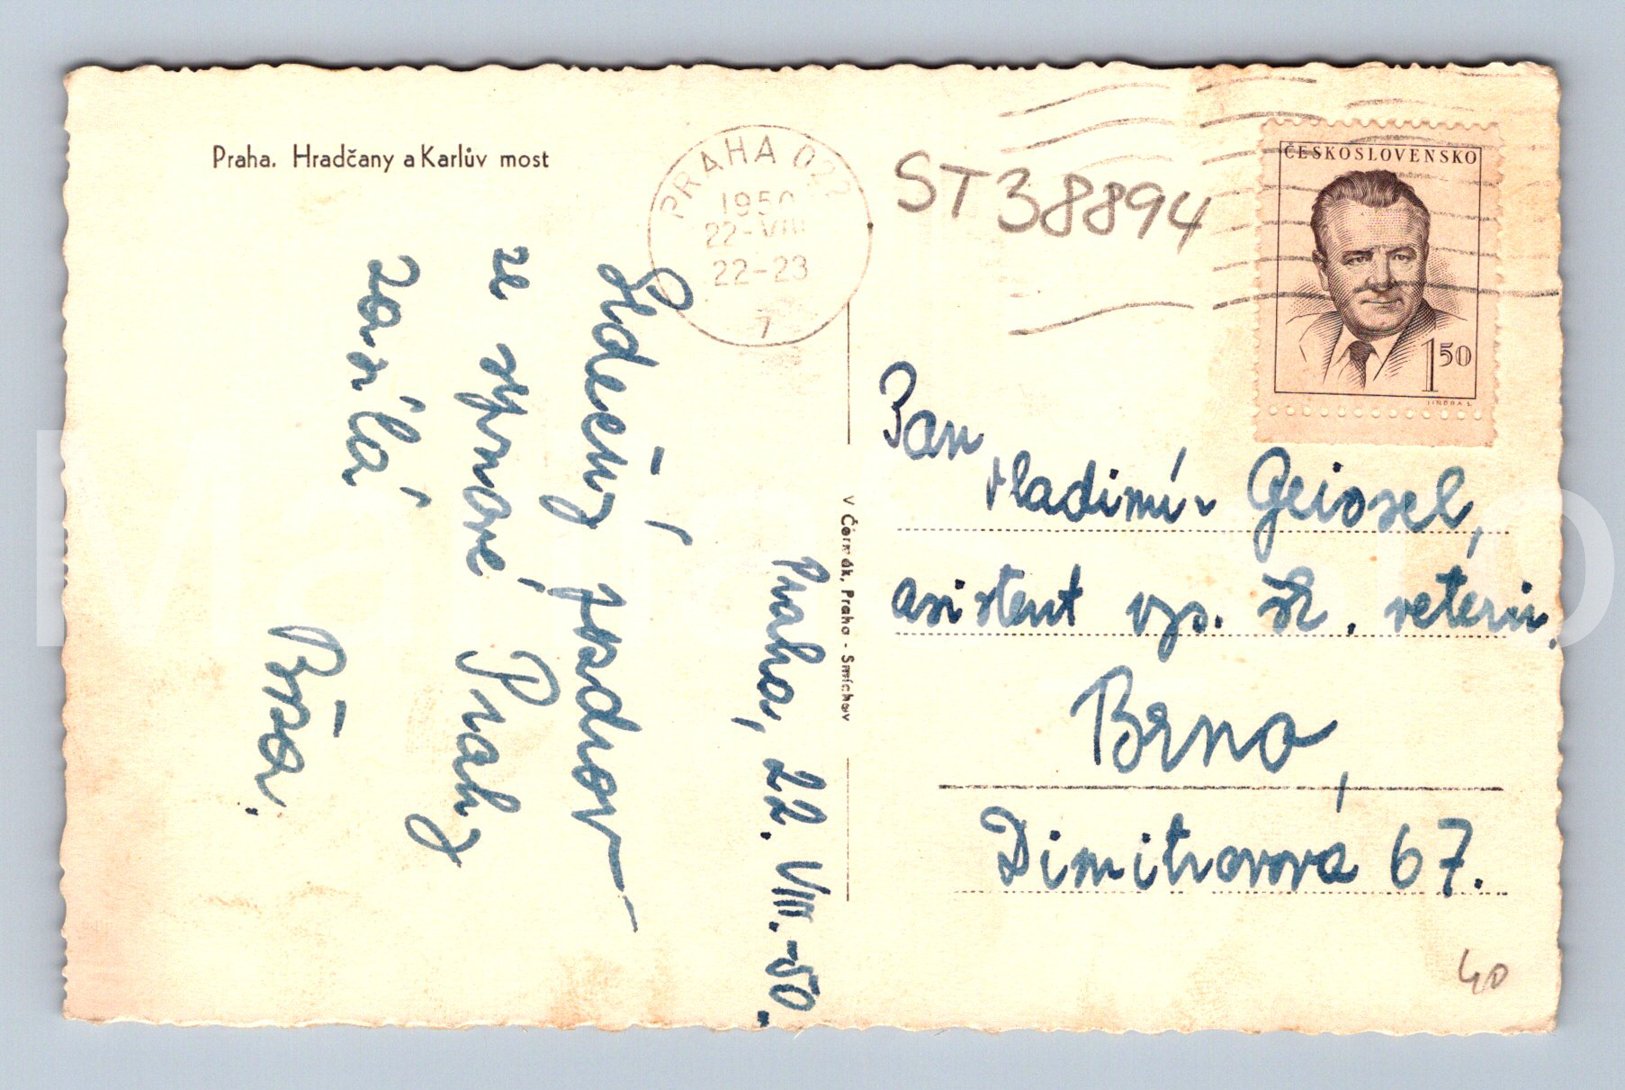 Praha. Hradčany a Karlův most
PRAHA 022
1950
22-VIII
22-23
7
ST 38894
ČESKOSLOVENSKO
1 50
JINDRA S.
Praha, 22. VIII. -50.
Srdečný pozdrav
ze srpnové Prahy
zasílá
Bráca.
V. Čermák, Praha - Smíchov
Pan
Vladimír Geissel,
asistent vys. šk. veterin.
Brno,
Dimitrovova 67.
40